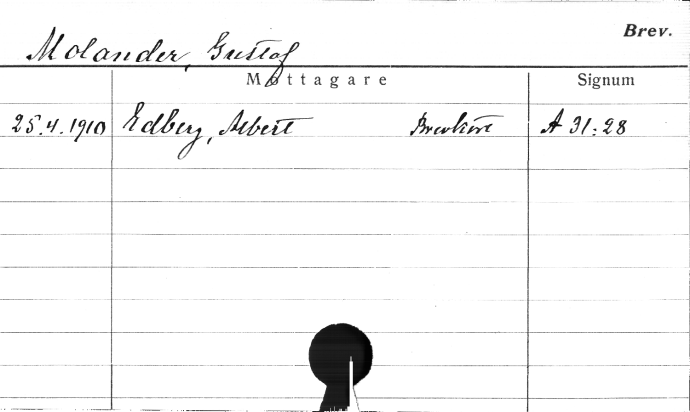 Brev.
Molander, Gustaf
Mottagare Signum
25.4.1910 Edberg, Albert Brevkort A 31:28